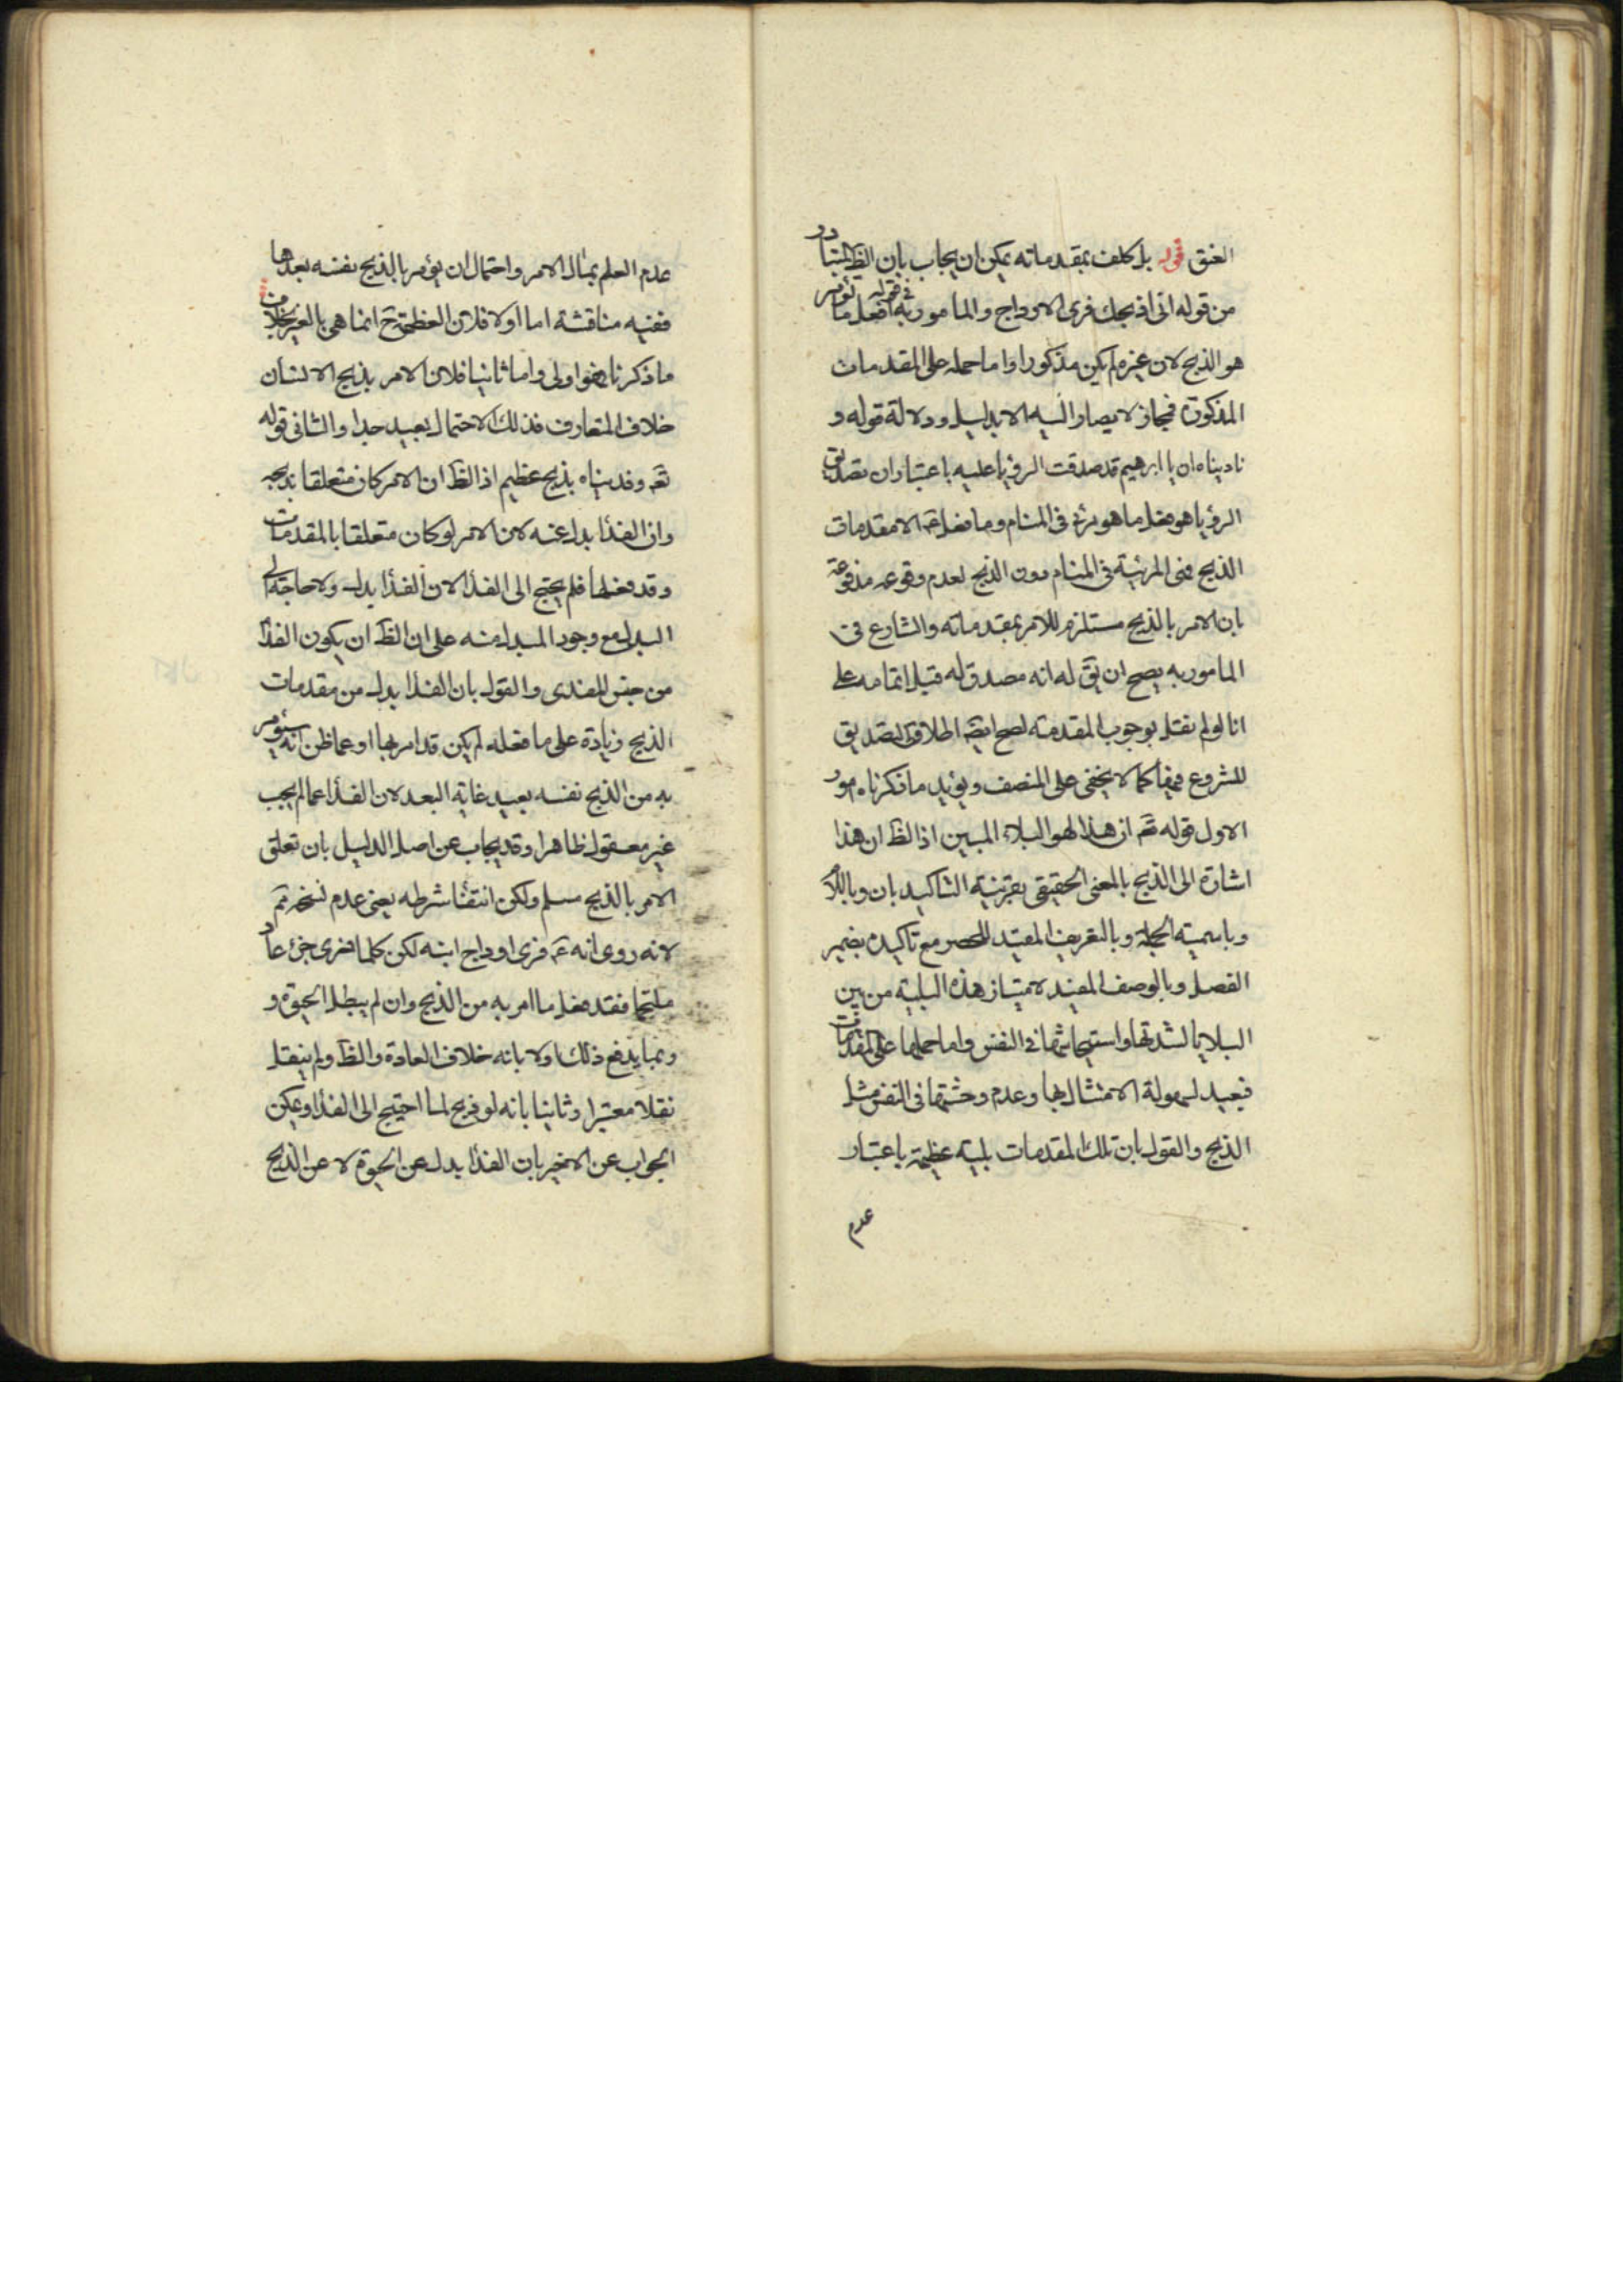 العنق قوله بل كلف بمقدماته يمكن ان يجاب بان الظ المتبادر
من قوله انى اذبحك فرى الاوداج والمامور به فى قوله افعل ما تؤمر
هو الذبح لان غيره لم يكن مذكورا واما حمله على المقدمات
المذكورة فمجاز لا يصار اليه الا بدليل ودلالة قوله و
ناديناه ان يا ابرهيم قد صدقت الرؤيا عليه باعتبار ان تصديق
الرؤيا هو فعل ما هو مرئى فى المنام وما فعل ع الا مقدمات
الذبح فهى المرئية فى المنام دون الذبح لعدم وقوعه مدفوعة
بان الامر بالذبح مستلزم للامر بمقدماته والشارع فى
المامور به يصح ان يق له انه مصدق له قبل اتمامه على
انا لو لم نقل بوجوب المقدمة لصح ايضا اطلاق التصديق
للشروع فيها كما لا يخفى على المنصف ويؤيد ما ذكرناه امور
الاول قوله تع ان هذا لهو البلاء المبين اذ الظ ان هذا
اشارة الى الذبح بالمعنى الحقيقى بقرينة التاكيد بان وباللام
وباسمية الجملة وبالتعريف المفيد للحصر مع تاكيده بضمير
الفصل وبالوصف المفيد لامتياز هذه البلية من بين
البلايا لشدتها واستيحاشها فى النفس واما حملها على المقدمات
فبعيد لسهولة الامتثال بها وعدم وحشتها فى النفس مثل
الذبح والقول بان تلك المقدمات بلية عظيمة باعتبار
عدم
عدم العلم بمثال الامر واحتمال ان يؤمر بالذبح نفسه بعدها
ففيه مناقشة اما اولا فلان العظمة ح انما هى بالغير بخلاف
ما ذكرنا فهو اولى واما ثانيا فلان الامر بذبح الانسان
خلاف المتعارف فذلك الاحتمال بعيد جدا والثانى قوله
تع وفديناه بذبح عظيم اذ الظ ان الامر كان متعلقا بذبحه
وان الفداء بدل عنه لان الامر لو كان متعلقا بالمقدمات
وقد فعلها فلم يحتج الى الفداء لان الفداء بدل ولا حاجة الى
البدل مع وجود المبدل منه على ان الظ ان يكون الفداء
من جنس المفدى والقول بان الفداء بدل من مقدمات
الذبح وزيادة على ما فعله لم يكن قد امر بها او عما ظن انه سيؤمر
به من الذبح نفسه بعيد غاية البعد لان الفداء عما لم يجب
غير معقول ظاهرا وقد يجاب عن اصل الدليل بان تعلق
الامر بالذبح مسلم ولكن انتفاء شرطه يعنى عدم نسخه تم
لانه روى انه ع فرى اوداج ابنه لكن كلما فرى جزء عاد
ملتحما فقد فعل ما امر به من الذبح وان لم يبطل الحيوة و
ربما يدفع ذلك اولا بانه خلاف العادة والظ ولم ينقل
نقلا معتبرا وثانيا بانه لو ذبح لما احتيج الى الفداء ويمكن
الجواب عن الاخير بان الفداء بدل عن الحيوة لا عن الذبح